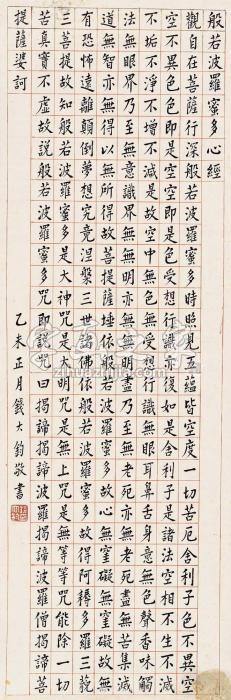 般若波羅蜜多心經
觀自在菩薩行深般若波羅蜜多時照見五蘊皆空度一切苦厄舍利子色不異空
空不異色色即是空空即是色受想行識亦復如是舍利子是諸法空相不生不滅
不垢不淨不增不減是故空中無色無受想行識無眼耳鼻舌身意無色聲香味觸
法無眼界乃至無意識界無無明亦無無明盡乃至無老死亦無老死盡無苦集滅
道無智亦無得以無所得故菩提薩埵依般若波羅蜜多故心無罣礙無罣礙故無
有恐怖遠離顛倒夢想究竟涅槃三世諸佛依般若波羅蜜多故得阿耨多羅三藐
三菩提故知般若波羅蜜多是大神咒是大明咒是無上咒是無等等咒能除一切
苦真實不虛故說般若波羅蜜多咒即說咒曰揭諦揭諦波羅揭諦波羅僧揭諦菩
提薩婆訶
乙未正月錢大鈞敬書